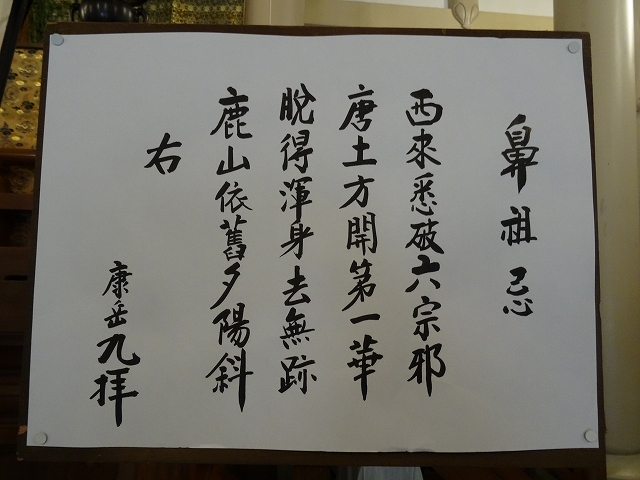 鼻祖忌
西來悉破六宗邪
唐土方開第一華
脫得渾身去無跡
鹿山依舊夕陽斜
右
康岳九拝